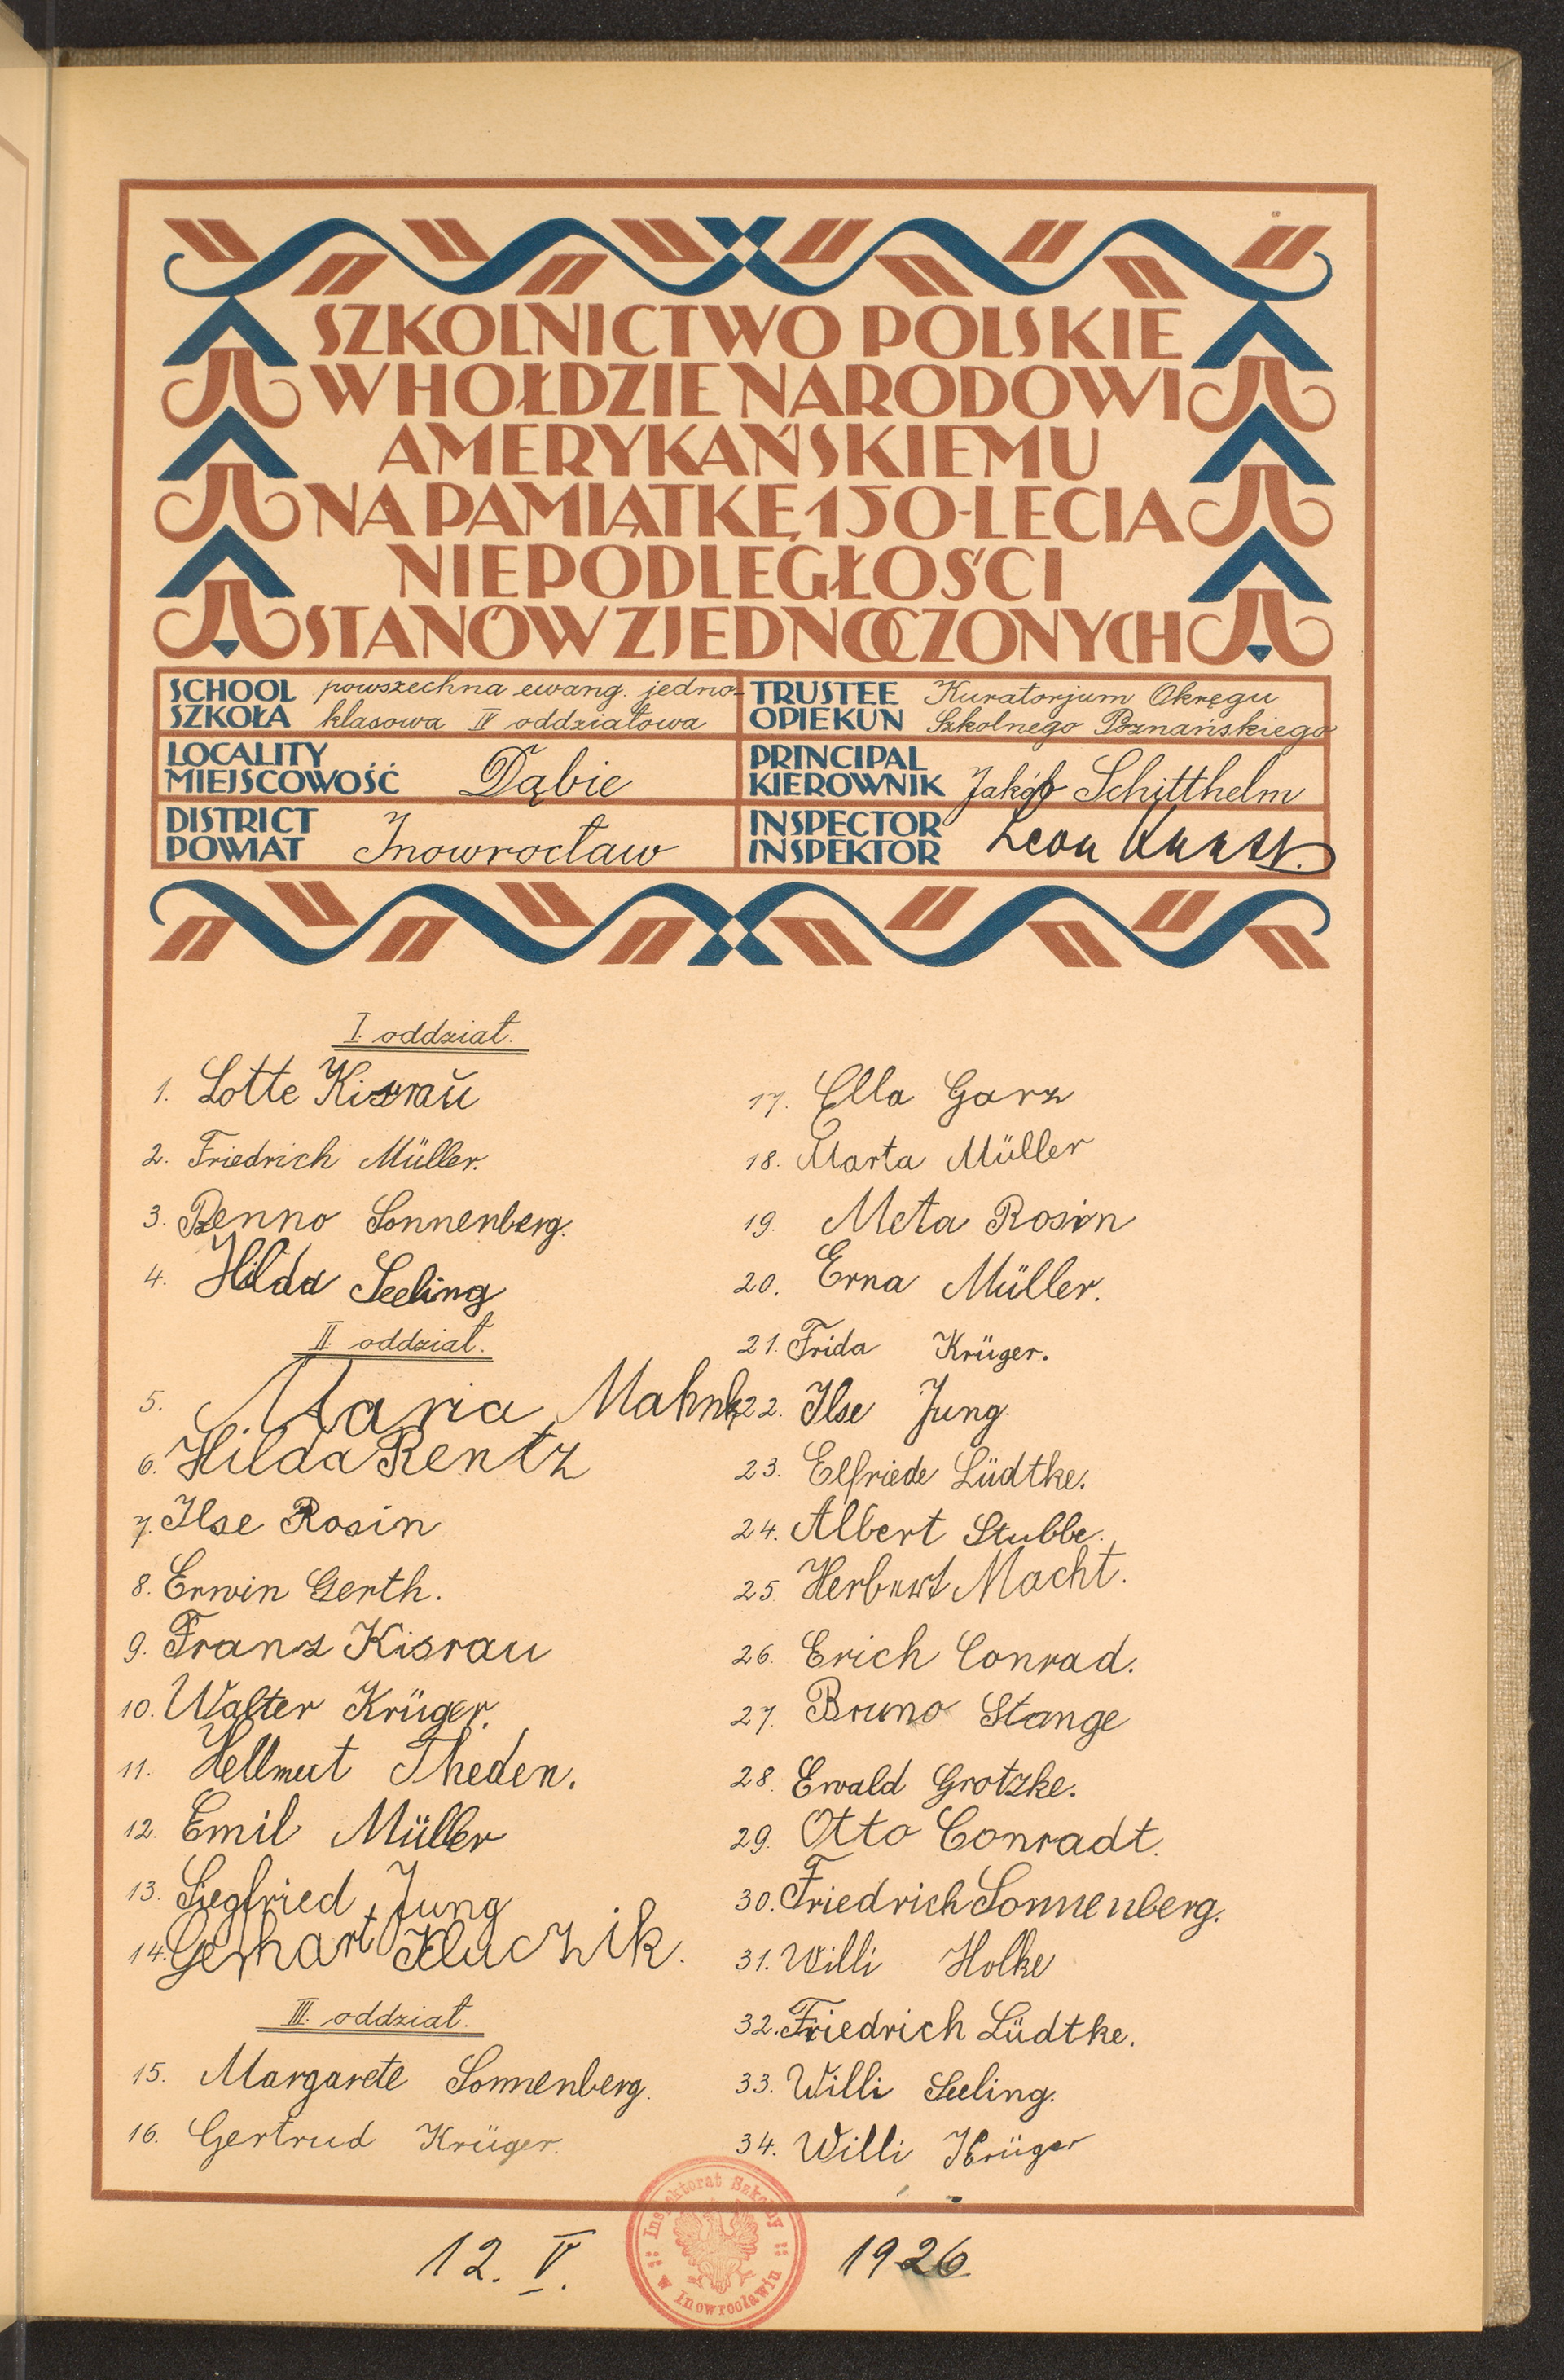 SZKOLNICTWO POLSKIE
W HOŁDZIE NARODOWI
AMERYKAŃSKIEMU
NA PAMIĄTKĘ 150-LECIA
NIEPODLEGŁOŚCI
STANÓW ZJEDNOCZONYCH
SCHOOL
SZKOŁA
powszechna ewang. jedno-
klasowa IV oddziałowa
TRUSTEE
OPIEKUN
Kuratorjum Okręgu
Szkolnego Poznańskiego
LOCALITY
MIEJSCOWOŚĆ
Dąbie
PRINCIPAL
KIEROWNIK
Jakób Schitthelm
DISTRICT
POWIAT
Inowrocław
INSPECTOR
INSPEKTOR
Leon
I. oddział.
1. Lotte Kisraŭ
2. Friedrich Müller.
3. Benno Sonnenberg.
4. Hilda Seeling
II. oddział.
5. Maria Mahnke
6. Hilda Rentz
7. Ilse Rosin
8. Erwin Gerth.
9. Franz Kisrau
10. Walter Krüger.
11. Hellmut Theden.
12. Emil Müller
13. Siegfried Jung
14. Gerhart Kluczik.
III. oddział.
15. Margarete Sonnenberg.
16. Gertrud Krüger.
17. Ella Garz
18. Marta Müller
19. Meta Rosin
20. Erna Müller.
21. Frida Krüger.
22. Ilse Jung.
23. Elfriede Lüdtke.
24. Albert Stubbe.
25. Herbert Macht.
26. Erich Conrad.
27. Bruno Stange
28. Ewald Grotzke.
29. Otto Conradt.
30. Friedrich Sonnenberg.
31. Willi Holke
32. Friedrich Lüdtke.
33. Willi Seeling.
34. Willi Krüger
Inspektorat Szkolny
w Inowrocławiu
12. V. 1926